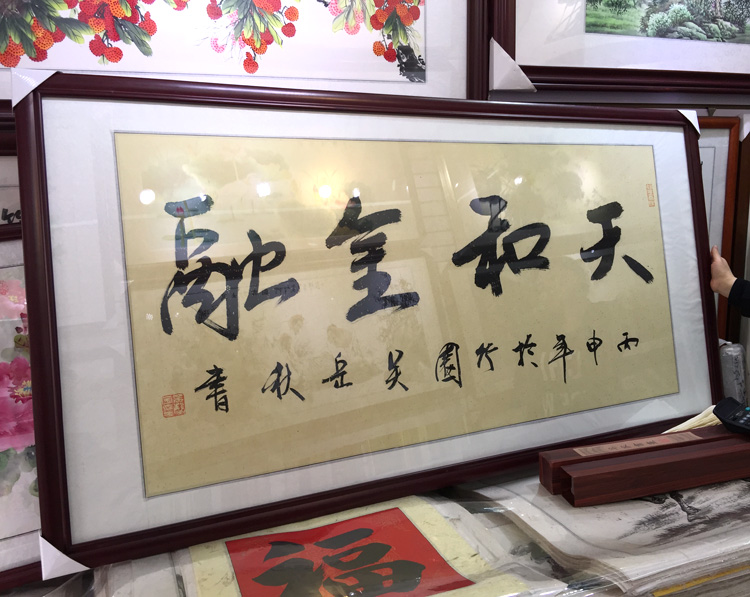 天和金融
丙申年於竹園吴岳秋書
福